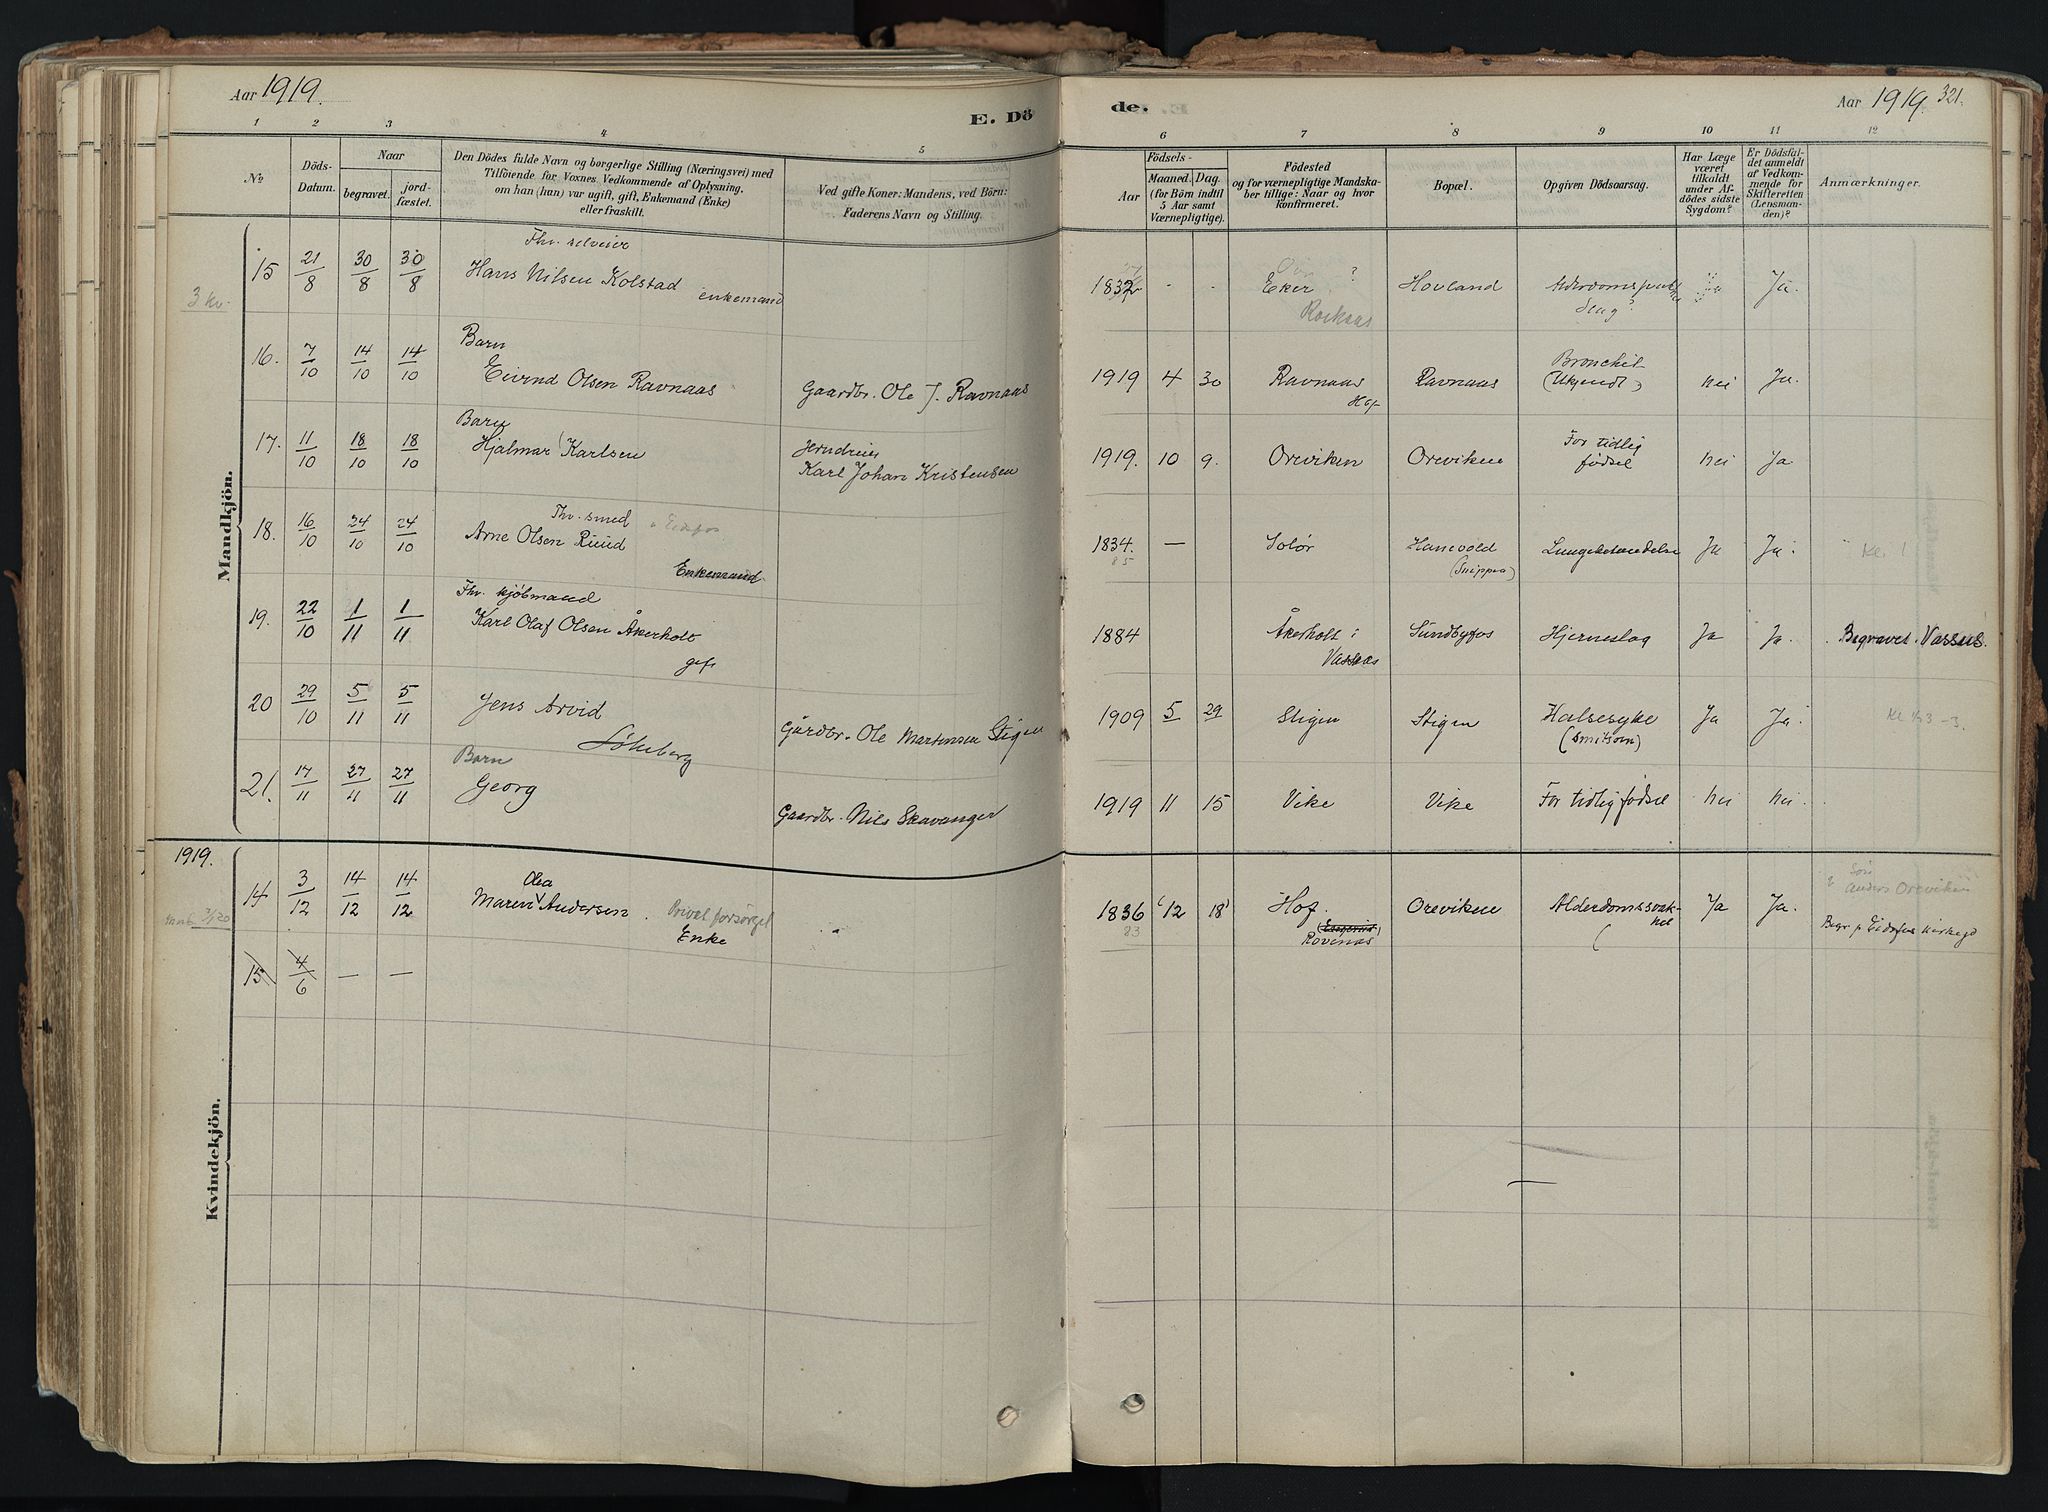 Aar 1919.
E. Dö
de.
Aar 1919. 321.
1 2 3 4 5 6 7 6 8 9 10 11 12
No
Döds-
Datum.
Naar
begravet.
jord-
fæstet.
Den Dödes fulde Navn og borgerlige Stilling (Næringsvei) med
Tilföiende for Voxnes Vedkommende af Oplysning,
om han (hun) var ugift, gift, Enkemand (Enke)
eller fraskilt.
Ved gifte Koner: Mandens, ved Börn:
Faderens Navn og Stilling.
Födsels-
Aar
Maaned. Dag.
(for Börn indtil
5 Aar samt
Værnepligtige).
Födested
og for værnepligtige Mandska-
ber tillige: Naar og hvor
konfirmeret.
Bopæl.
Opgiven Dödsaarsag.
Har Læge
været
tilkaldt
under Af-
dödes sidste
Sygdom?
Er Dödsfal-
det anmeldt
af Vedkom-
mende for
Skifteretten
(Lensman-
den)?
Anmærkninger.
Mandkjön.
3 kv.
15 21/8 30/8 30/8 Fhv. selveier
Hans Nilsen Kolstad enkemand
1832 - - Eker ? Hovland Ja.
16. 7/10 14/10 14/10 Barn
Eivind Olsen Ravnaas Gaardbr. Ole J. Ravnaas
1919 4 30 Ravnaas Hof Ravnaas Bronchit (Ukjendt) nei Ja.
17. 11/10 18/10 18/10 Barn
Hjalmar Karlsen
Karl Johan Kristensen
1919. 10 9. Oreviken Oreviken For tidlig
födsel nei Ja
18. 16/10 24/10 24/10 Fhv. smed Eidsfos
Arne Olsen Ruud
Enkemand
1834. 85 — Solör Hanevold Lungebetændelse Ja Ja.
19. 22/10 1/11 1/11 Fhv. kjöbmand
Karl Olaf Olsen Åkerholt
gift
1884 Åkerholt i
Vassaas Sundbyfos Hjerneslag Ja Ja. Begravet Vassaas.
20 29/10 5/11 5/11 Jens Arvid
Gårdbr. Ole Martensen Stigen
1909 5 29 Stigen Stigen Halsesyke
(smitsom) Ja Ja.
21. 17/11 27/11 27/11 Barn
Georg
Gaardbr. Nils Skavanger
1919 11 15 Vike Vike For tidlig födsel nei nei.
1919.
Kvindekjön.
14 3/12 14/12 14/12 Olea
Maren Andersen. Privat forsörget
Enke
1836 83 (12 18) Hof.
Oreviken Alderdomssvak-
het Ja Ja. Sön
Anders Oreviken
Begr. p. Eidsfos kirkegd
15 4/6 — —